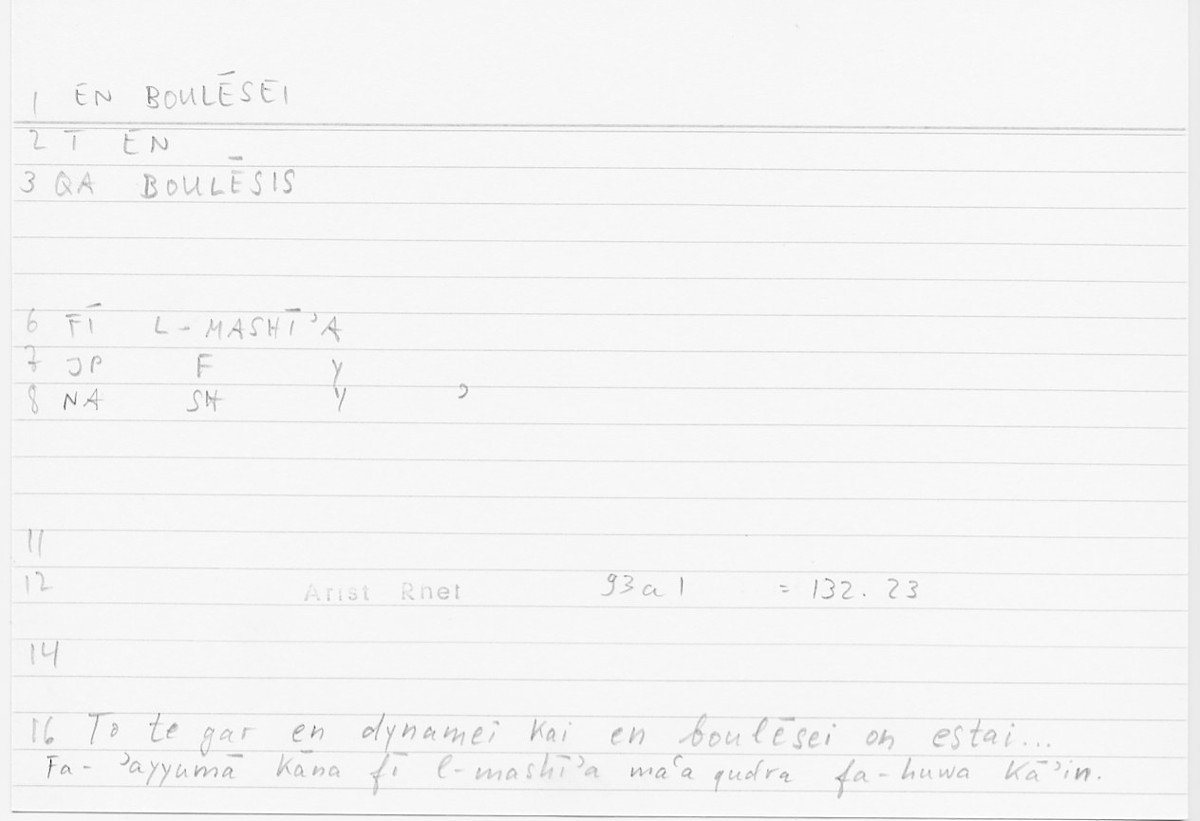 1 EN BOULĒSEI
2 T EN
3 QA BOULĒSIS
6 FĪ L-MASHĪʾA
7 JP F Y
8 NA SH Y ʾ
11
12 Arist Rhet 93a1 = 132.23
14
16 To te gar en dynamei kai en boulēsei on estai...
Fa-ʾayyumā kāna fī l-mashīʾa maʿa qudra fa-huwa kāʾin.